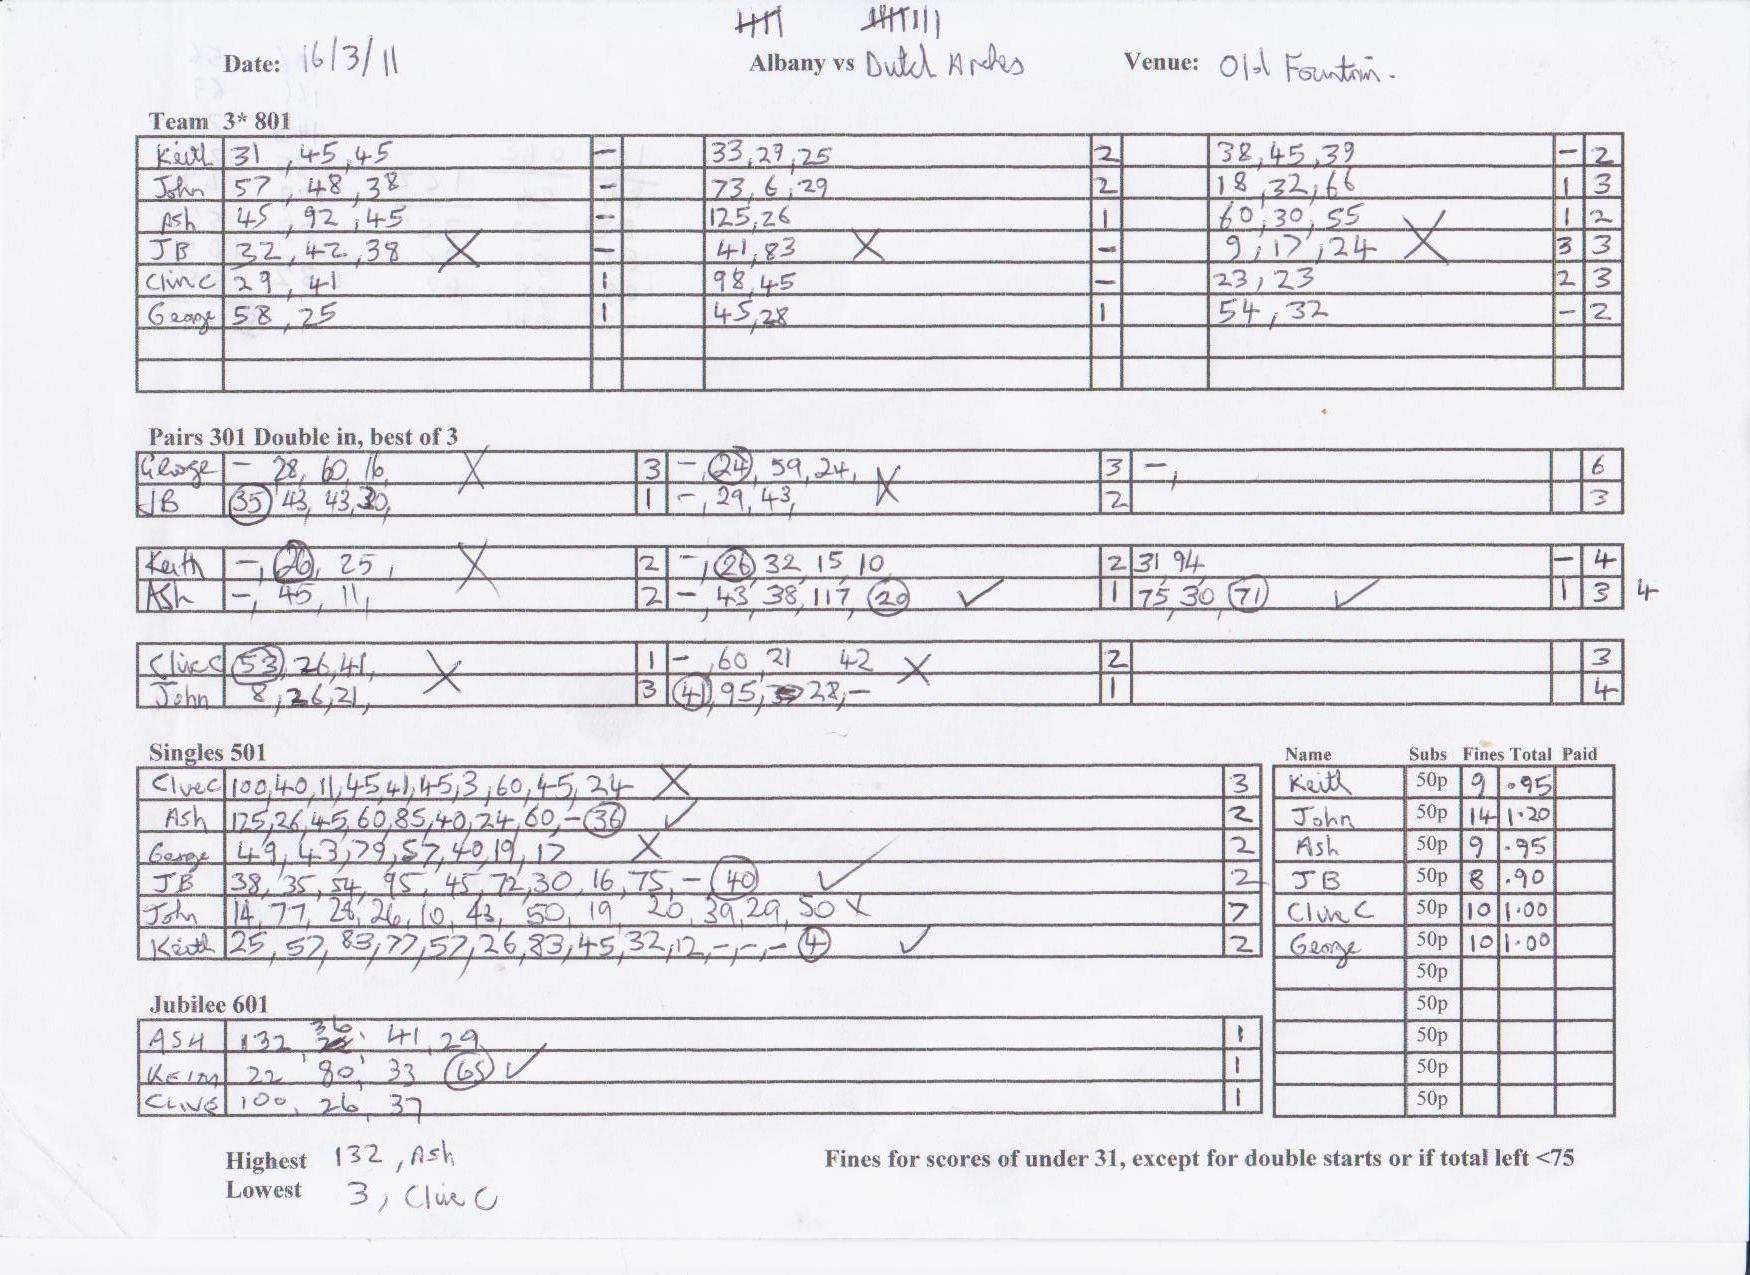 Date: 16/3/11 Albany vs Dutch Arches Venue: Old Fountain.
Team 3* 801
Keith 31, 45, 45 - 33, 29, 25 2 38, 45, 39 - 2
John 57, 48, 38 - 73, 6, 29 2 18, 32, 66 1 3
Ash 45, 92, 45 - 125, 26 1 60, 30, 55 1 2
JB 32, 42, 38 X - 41, 83 X - 9, 17, 24 X 3 3
Clive C 29, 41 1 98, 45 - 23, 23 2 3
George 58, 25 1 45, 28 1 54, 32 - 2
Pairs 301 Double in, best of 3
George - 28, 60, 16, X 3 -, 24, 59, 24, X 3 -, 6
JB 35, 43, 43, 30, 1 -, 29, 43, 2 3
Keith -, 26, 25, X 2 -, 26, 32, 15, 10 2 31, 94, - 4
Ash -, 45, 11, 2 -, 43, 38, 117, 20 ✓ 1 75, 30, 71 ✓ 1 3 4
Clive C 53, 26, 41, X 1 -, 60, 21 42 X 2 3
John 8, 26, 21, 3 41, 95, 28, - 1 4
Singles 501
Clive C 100, 40, 11, 45, 41, 45, 3, 60, 45, 24 X 3
Ash 125, 26, 45, 60, 85, 40, 24, 60, - 36 ✓ 2
George 49, 43, 79, 57, 40, 19, 17 X 2
JB 38, 35, 54, 95, 45, 72, 30, 16, 75, - 40 ✓ 2
John 14, 77, 28, 26, 10, 43, 50, 19 20, 39, 29, 50 X 7
Keith 25, 57, 83, 77, 57, 26, 83, 45, 32, 12, -, -, - 4 ✓ 2
Name Subs Fines Total Paid
Keith 50p 9 .95
John 50p 14 1.20
Ash 50p 9 .95
JB 50p 8 .90
Clive C 50p 10 1.00
George 50p 10 1.00
50p
50p
50p
50p
50p
Jubilee 601
ASH 132, 36, 41, 29 1
KEITH 22 80, 33 65 ✓ 1
CLIVE 100, 26, 37 1
Highest 132, Ash
Lowest 3, Clive C
Fines for scores of under 31, except for double starts or if total left <75